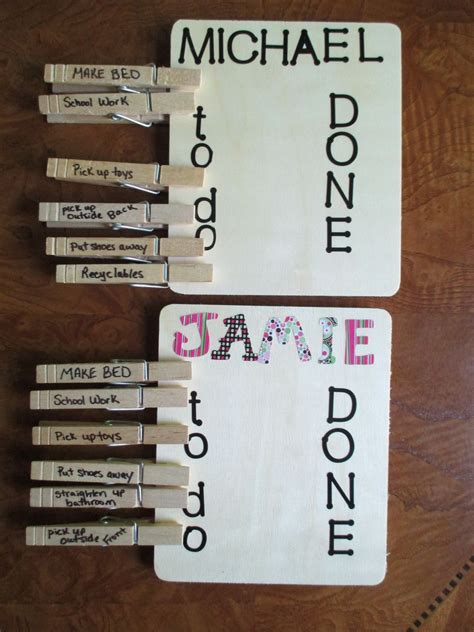 MICHAEL
MAKE BED
School Work
Pick up toys
pick up
outside Back
Put shoes away
Recyclables
to do
DONE
JAMIE
MAKE BED
School Work
Pick up toys
Put shoes away
straighten up
bathroom
pick up
outside Front
to do
DONE